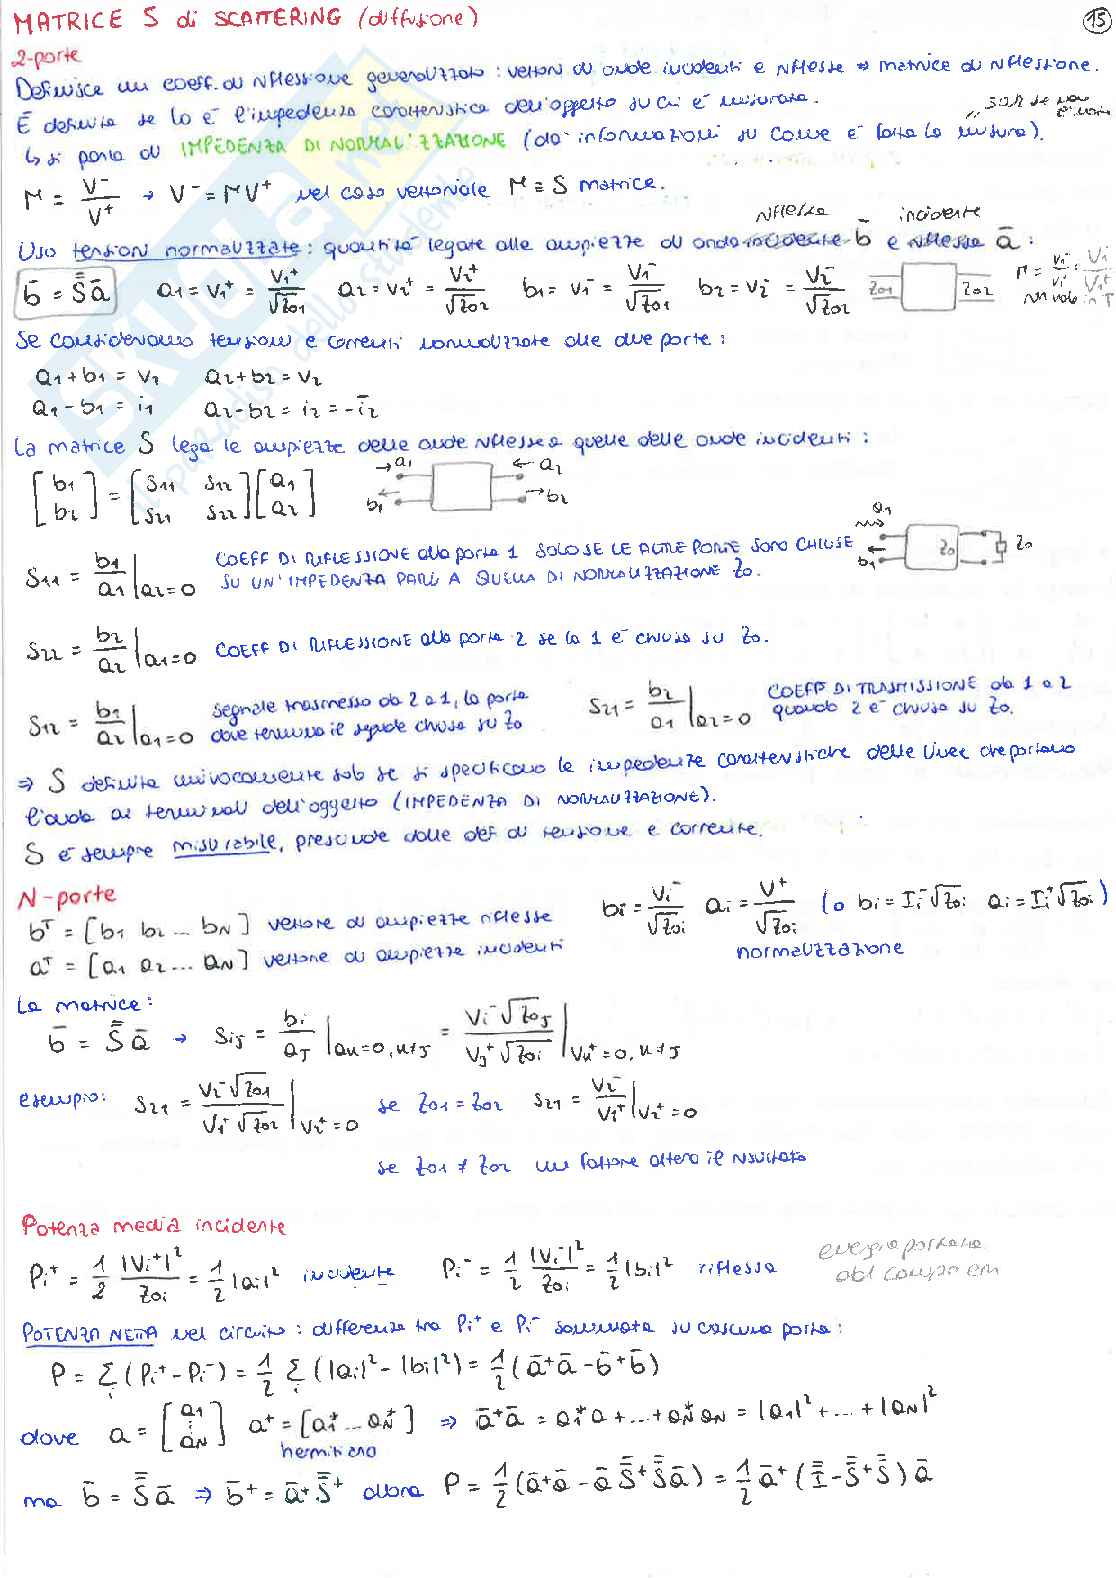 MATRICE S di SCATTERING (diffusione)
15
2-porte
Definisce un coeff. di riflessione generalizzato : vettori di onde incidenti e riflesse → matrice di riflessione.
È definita se lo è l'impedenza caratteristica dell'oggetto su cui è misurata.
50Ω se non
↳ si parla di IMPEDENZA DI NORMALIZZAZIONE (dà informazioni su come è fatta la misura).
Γ = V⁻/V⁺ → V⁻ = ΓV⁺ nel caso vettoriale Γ ≡ S matrice.
riflessa incidente
Uso tensioni normalizzate : quantità legate alle ampiezze di onda incidente b̄ e riflessa ā :
b̄ = S̄ā a1 = v1⁺ = V1⁺/√Z01 a2 = v2⁺ = V2⁺/√Z02 b1 = v1⁻ = V1⁻/√Z01 b2 = v2⁻ = V2⁻/√Z02 Z01 Z02
non vale in T
Se consideriamo tensioni e correnti normalizzate alle due porte :
a1 + b1 = v1 a2 + b2 = v2
a1 - b1 = i1 a2 - b2 = i2 = -ī2
La matrice S lega le ampiezze delle onde riflesse a quelle delle onde incidenti :
[b1 b2] = [S11 S12 S21 S22] [a1 a2] →a1 ←a2 b1 →b2
S11 = b1/a1 |a2=0 COEFF DI RIFLESSIONE alla porta 1 SOLO SE LE ALTRE PORTE SONO CHIUSE
SU UN'IMPEDENZA PARI A QUELLA DI NORMALIZZAZIONE Z0.
a1 b1 Z0 Z0
S22 = b2/a2 |a1=0 COEFF DI RIFLESSIONE alla porta 2 se la 1 è chiusa su Z0.
S12 = b1/a2 |a1=0 segnale trasmesso da 2 a 1, la porta
dove termina il segnale chiusa su Z0
S21 = b2/a1 |a2=0 COEFF DI TRASMISSIONE da 1 a 2
quando 2 è chiusa su Z0.
⇒ S definita univocamente solo se si specificano le impedenze caratteristiche delle linee che portano
l'onda ai terminali dell'oggetto (IMPEDENZA DI NORMALIZZAZIONE).
S è sempre misurabile, prescinde dalle def di tensione e corrente.
N-porte
bᵀ = [b1 b2 ... bN] vettore di ampiezze riflesse
aᵀ = [a1 a2 ... aN] vettore di ampiezze incidenti
bi = Vi⁻/√Z0i ai = V⁺/√Z0i (o bi = Ii⁻√Z0i ai = Ii⁺√Z0i)
normalizzazione
La matrice :
b̄ = S̄ ā → Sij = bi/aj |ak=0, k≠j = Vi⁻√Z0j / Vj⁺√Z0i |Vk⁺=0, k≠j
esempio: S21 = V2⁻√Z01 / V1⁺√Z02 |V2⁺=0 se Z01 = Z02 S21 = V2⁻/V1⁺ |V2⁺=0
se Z01 ≠ Z02 un fattore altera il risultato
Potenza media incidente
Pi⁺ = 1/2 |Vi⁺|²/Z0i = 1/2 |ai|² incidente Pi⁻ = 1/2 |Vi⁻|²/Z0i = 1/2 |bi|² riflessa
energia portata
dal campo em
POTENZA NETTA nel circuito : differenza tra Pi⁺ e Pi⁻ sommata su ciascuna porta :
P = Σi (Pi⁺ - Pi⁻) = 1/2 Σi (|ai|² - |bi|²) = 1/2 (ā⁺ā - b̄⁺b̄)
dove a = [a1 ⋮ aN] a⁺ = [a1* ... aN*] ⇒ ā⁺ā = a1*a + ... + aN*aN = |a1|² + ... + |aN|²
hermitiano
ma b̄ = S̄ā ⇒ b̄⁺ = ā⁺·S̄⁺ allora P = 1/2 (ā⁺ā - āS̄⁺S̄ā) = 1/2 ā⁺ (Ī - S̄⁺S̄) ā